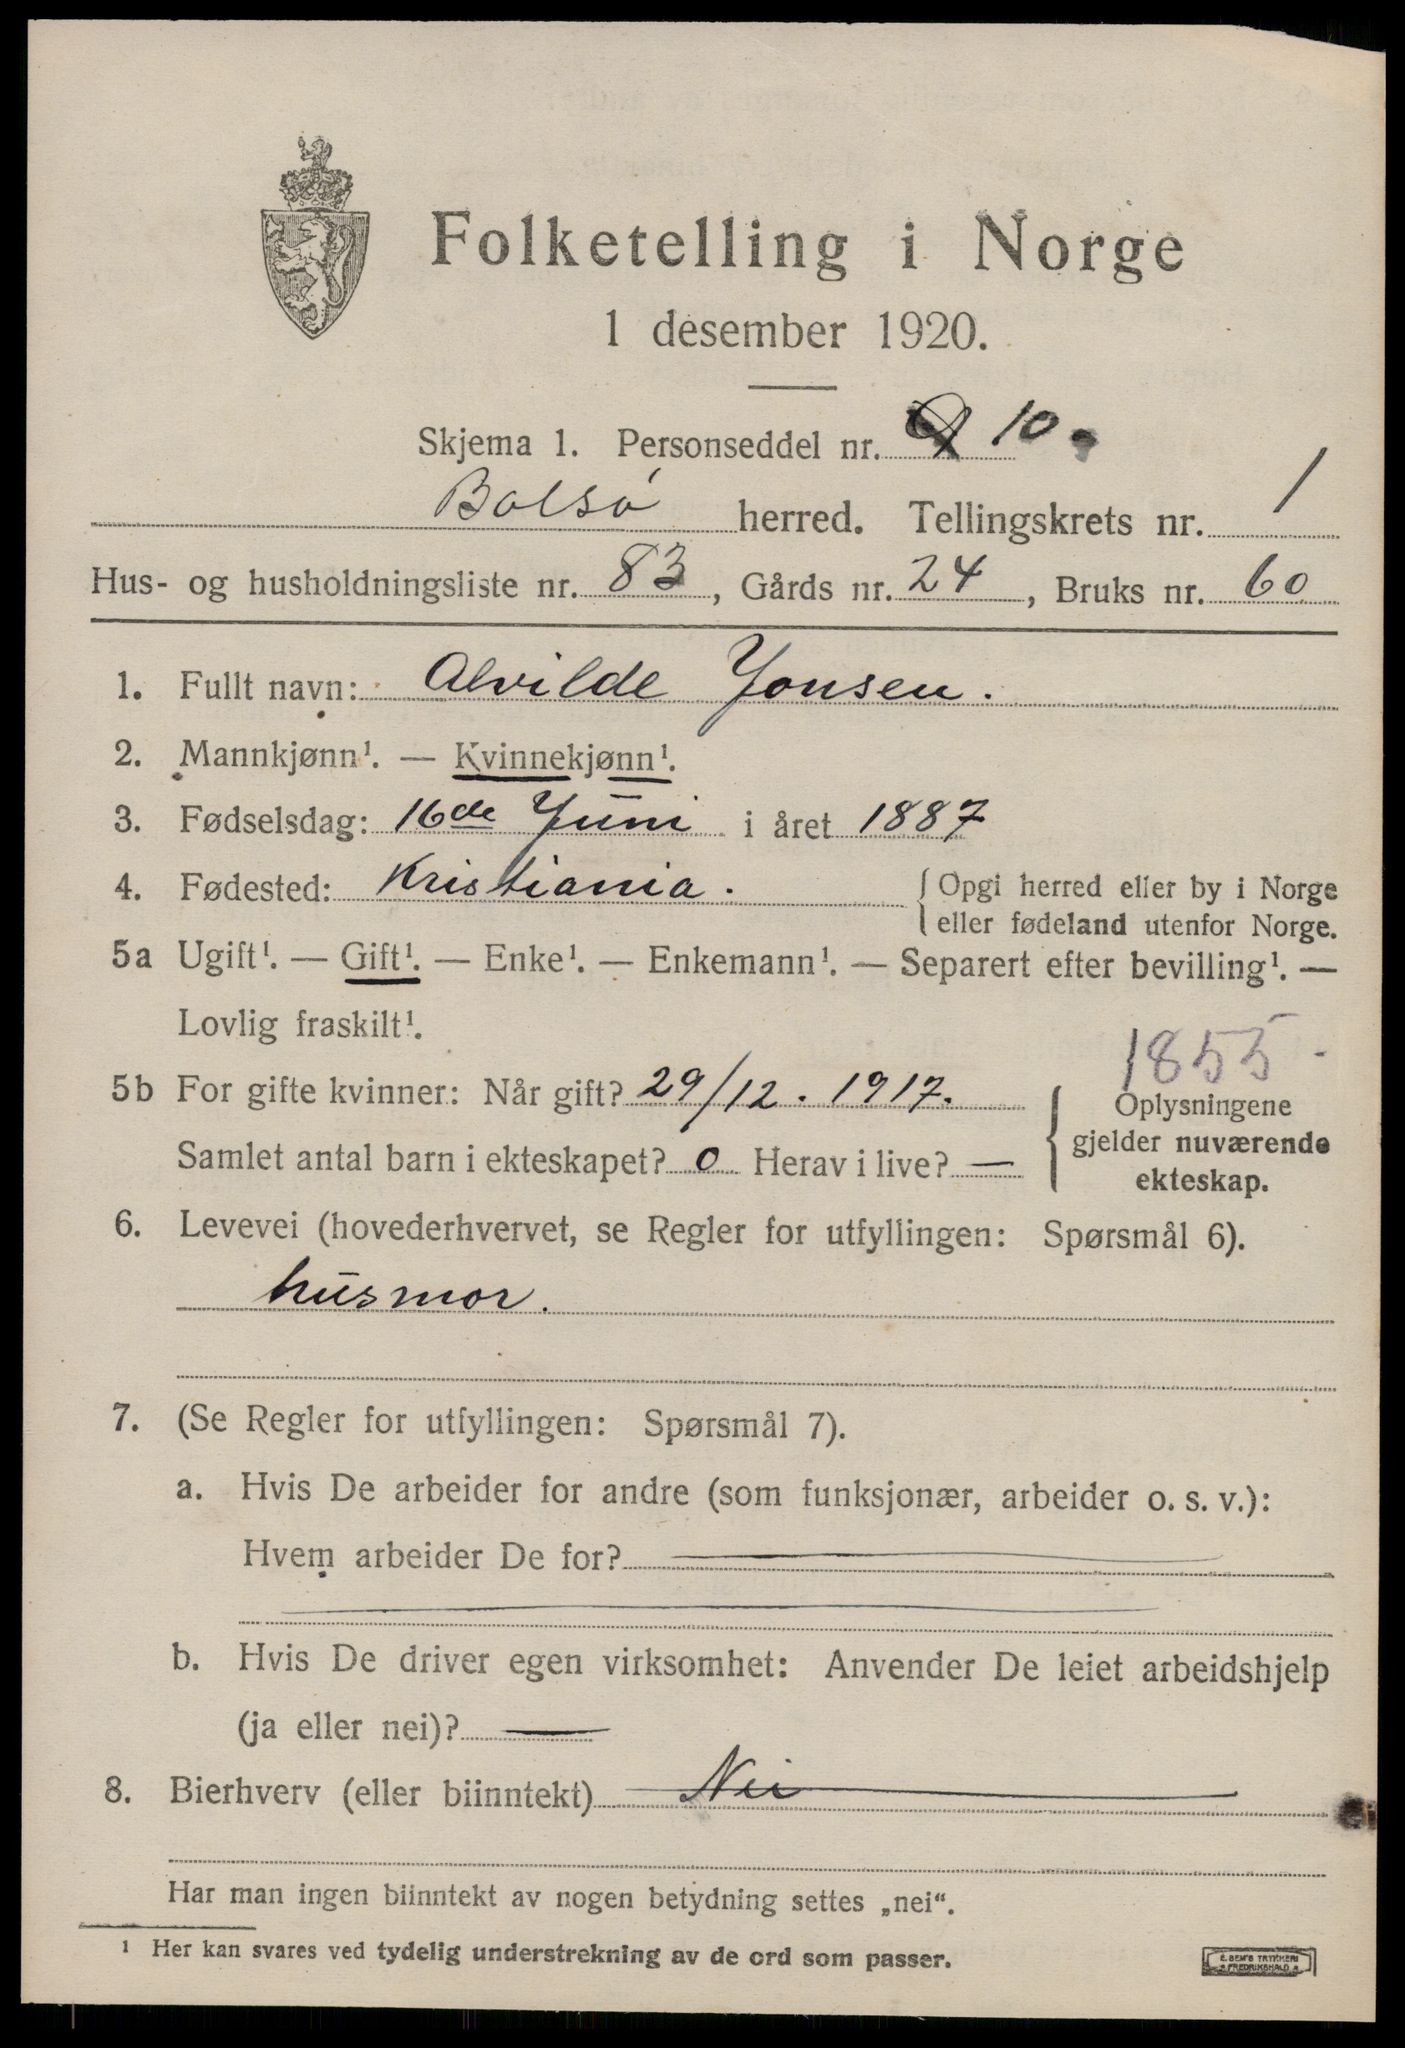 Folketelling i Norge
1 desember 1920.
Skjema 1. Personseddel nr. 10.
Bolsø herred. Tellingskrets nr. 1
Hus- og husholdningsliste nr. 83, Gårds nr. 24, Bruks nr. 60
1. Fullt navn: Alvilde Jonsen.
2. Mannkjønn¹. — Kvinnekjønn¹.
3. Fødselsdag: 16de Juni i året 1887
4. Fødested: Kristiania. { Opgi herred eller by i Norge
eller fødeland utenfor Norge.
5a Ugift¹. — Gift¹. — Enke¹. — Enkemann¹. — Separert efter bevilling¹. —
Lovlig fraskilt¹.
1855
5b For gifte kvinner: Når gift? 29/12. 1917. { Oplysningene
Samlet antal barn i ekteskapet? 0 Herav i live? — gjelder nuværende
ekteskap.
6. Levevei (hovederhvervet, se Regler for utfyllingen: Spørsmål 6).
husmor.
7. (Se Regler for utfyllingen: Spørsmål 7).
a. Hvis De arbeider for andre (som funksjonær, arbeider o. s. v.):
Hvem arbeider De for? —
b. Hvis De driver egen virksomhet: Anvender De leiet arbeidshjelp
(ja eller nei)? —
8. Bierhverv (eller biinntekt) Nei
Har man ingen biinntekt av nogen betydning settes „nei“.
¹ Her kan svares ved tydelig understrekning av de ord som passer.
E. SEM'S TRYKKERI
FREDRIKSHALD